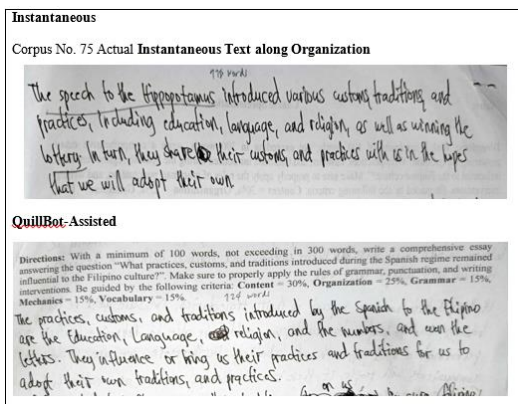 Instantaneous
Corpus No. 75 Actual Instantaneous Text along Organization
words
The speech to the Hippopotamus introduced various customs, traditions, and
practices, including education, language, and religion, as well as winning the
lottery. In turn, they share their customs, and practices with us in the hopes
that we will adopt their own
QuillBot-Assisted
Directions: With a minimum of 100 words, not exceeding in 300 words, write a comprehensive essay
answering the question "What practices, customs, and traditions introduced during the Spanish regime remained
influential to the Filipino culture?". Make sure to properly apply the rules of grammar, punctuation, and writing
interventions. Be guided by the following criteria: Content - 30%, Organization - 25%, Grammar = 15%,
Mechanics - 15%, Vocabulary - 15%.
124 words
The practices, customs, and traditions introduced by the Spanish to the Filipino
are the Education, Language, religion, and the numbers, and even the
letters. They influence or bring us their practices and traditions for us to
adopt their own traditions, and practices.
on us